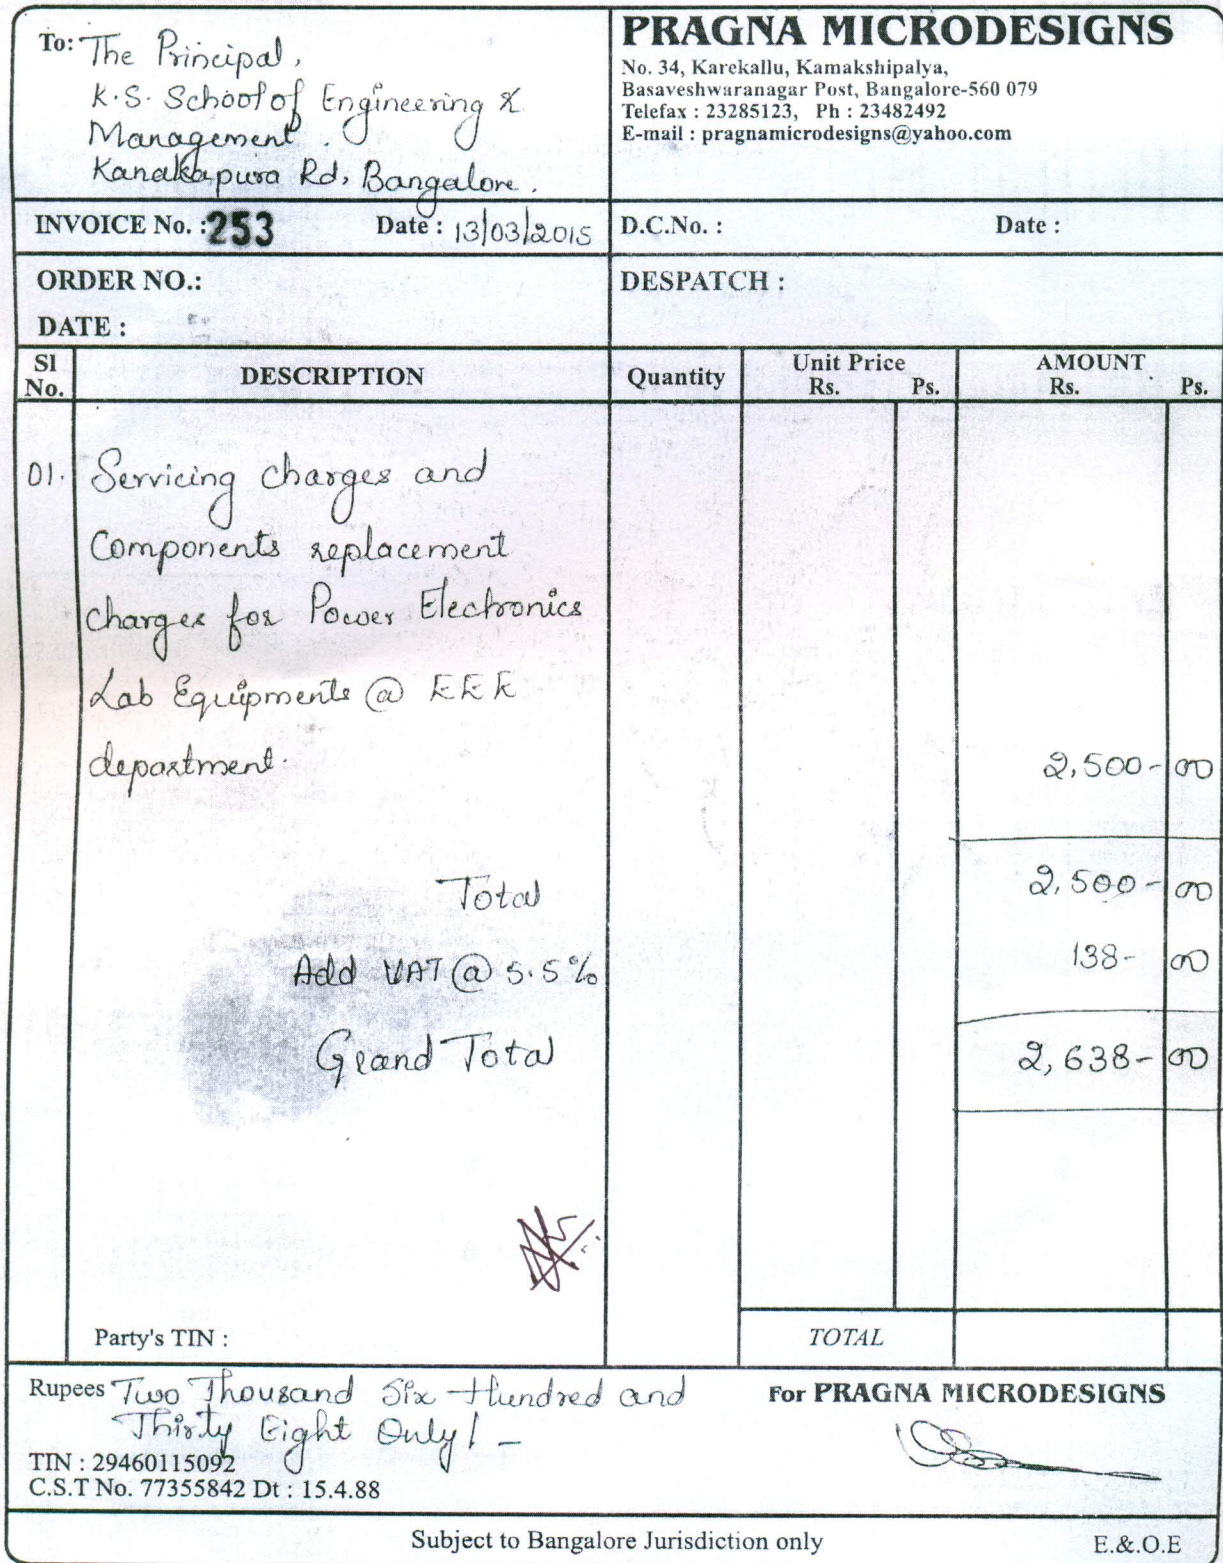 To: The Principal,
K.S. School of Engineering &
Management.
Kanakapura Rd, Bangalore.
PRAGNA MICRODESIGNS
No. 34, Karekallu, Kamakshipalya,
Basaveshwaranagar Post, Bangalore-560 079
Telefax : 23285123, Ph : 23482492
E-mail : pragnamicrodesigns@yahoo.com
INVOICE No. : 253 Date : 13/03/2015
D.C.No. : Date :
ORDER NO.:
DATE :
DESPATCH :
Sl No. DESCRIPTION Quantity Unit Price Rs. Ps. AMOUNT Rs. Ps.
01. Servicing charges and
Components replacement
charges for Power Electronics
Lab Equipments @ EEE
department. 2,500-00
Total 2,500-00
Add VAT @ 5.5% 138-00
Grand Total 2,638-00
Party's TIN :
TOTAL
Rupees Two Thousand Six Hundred and
Thirty Eight Only/-
For PRAGNA MICRODESIGNS
TIN : 29460115092
C.S.T No. 77355842 Dt : 15.4.88
Subject to Bangalore Jurisdiction only E.&.O.E